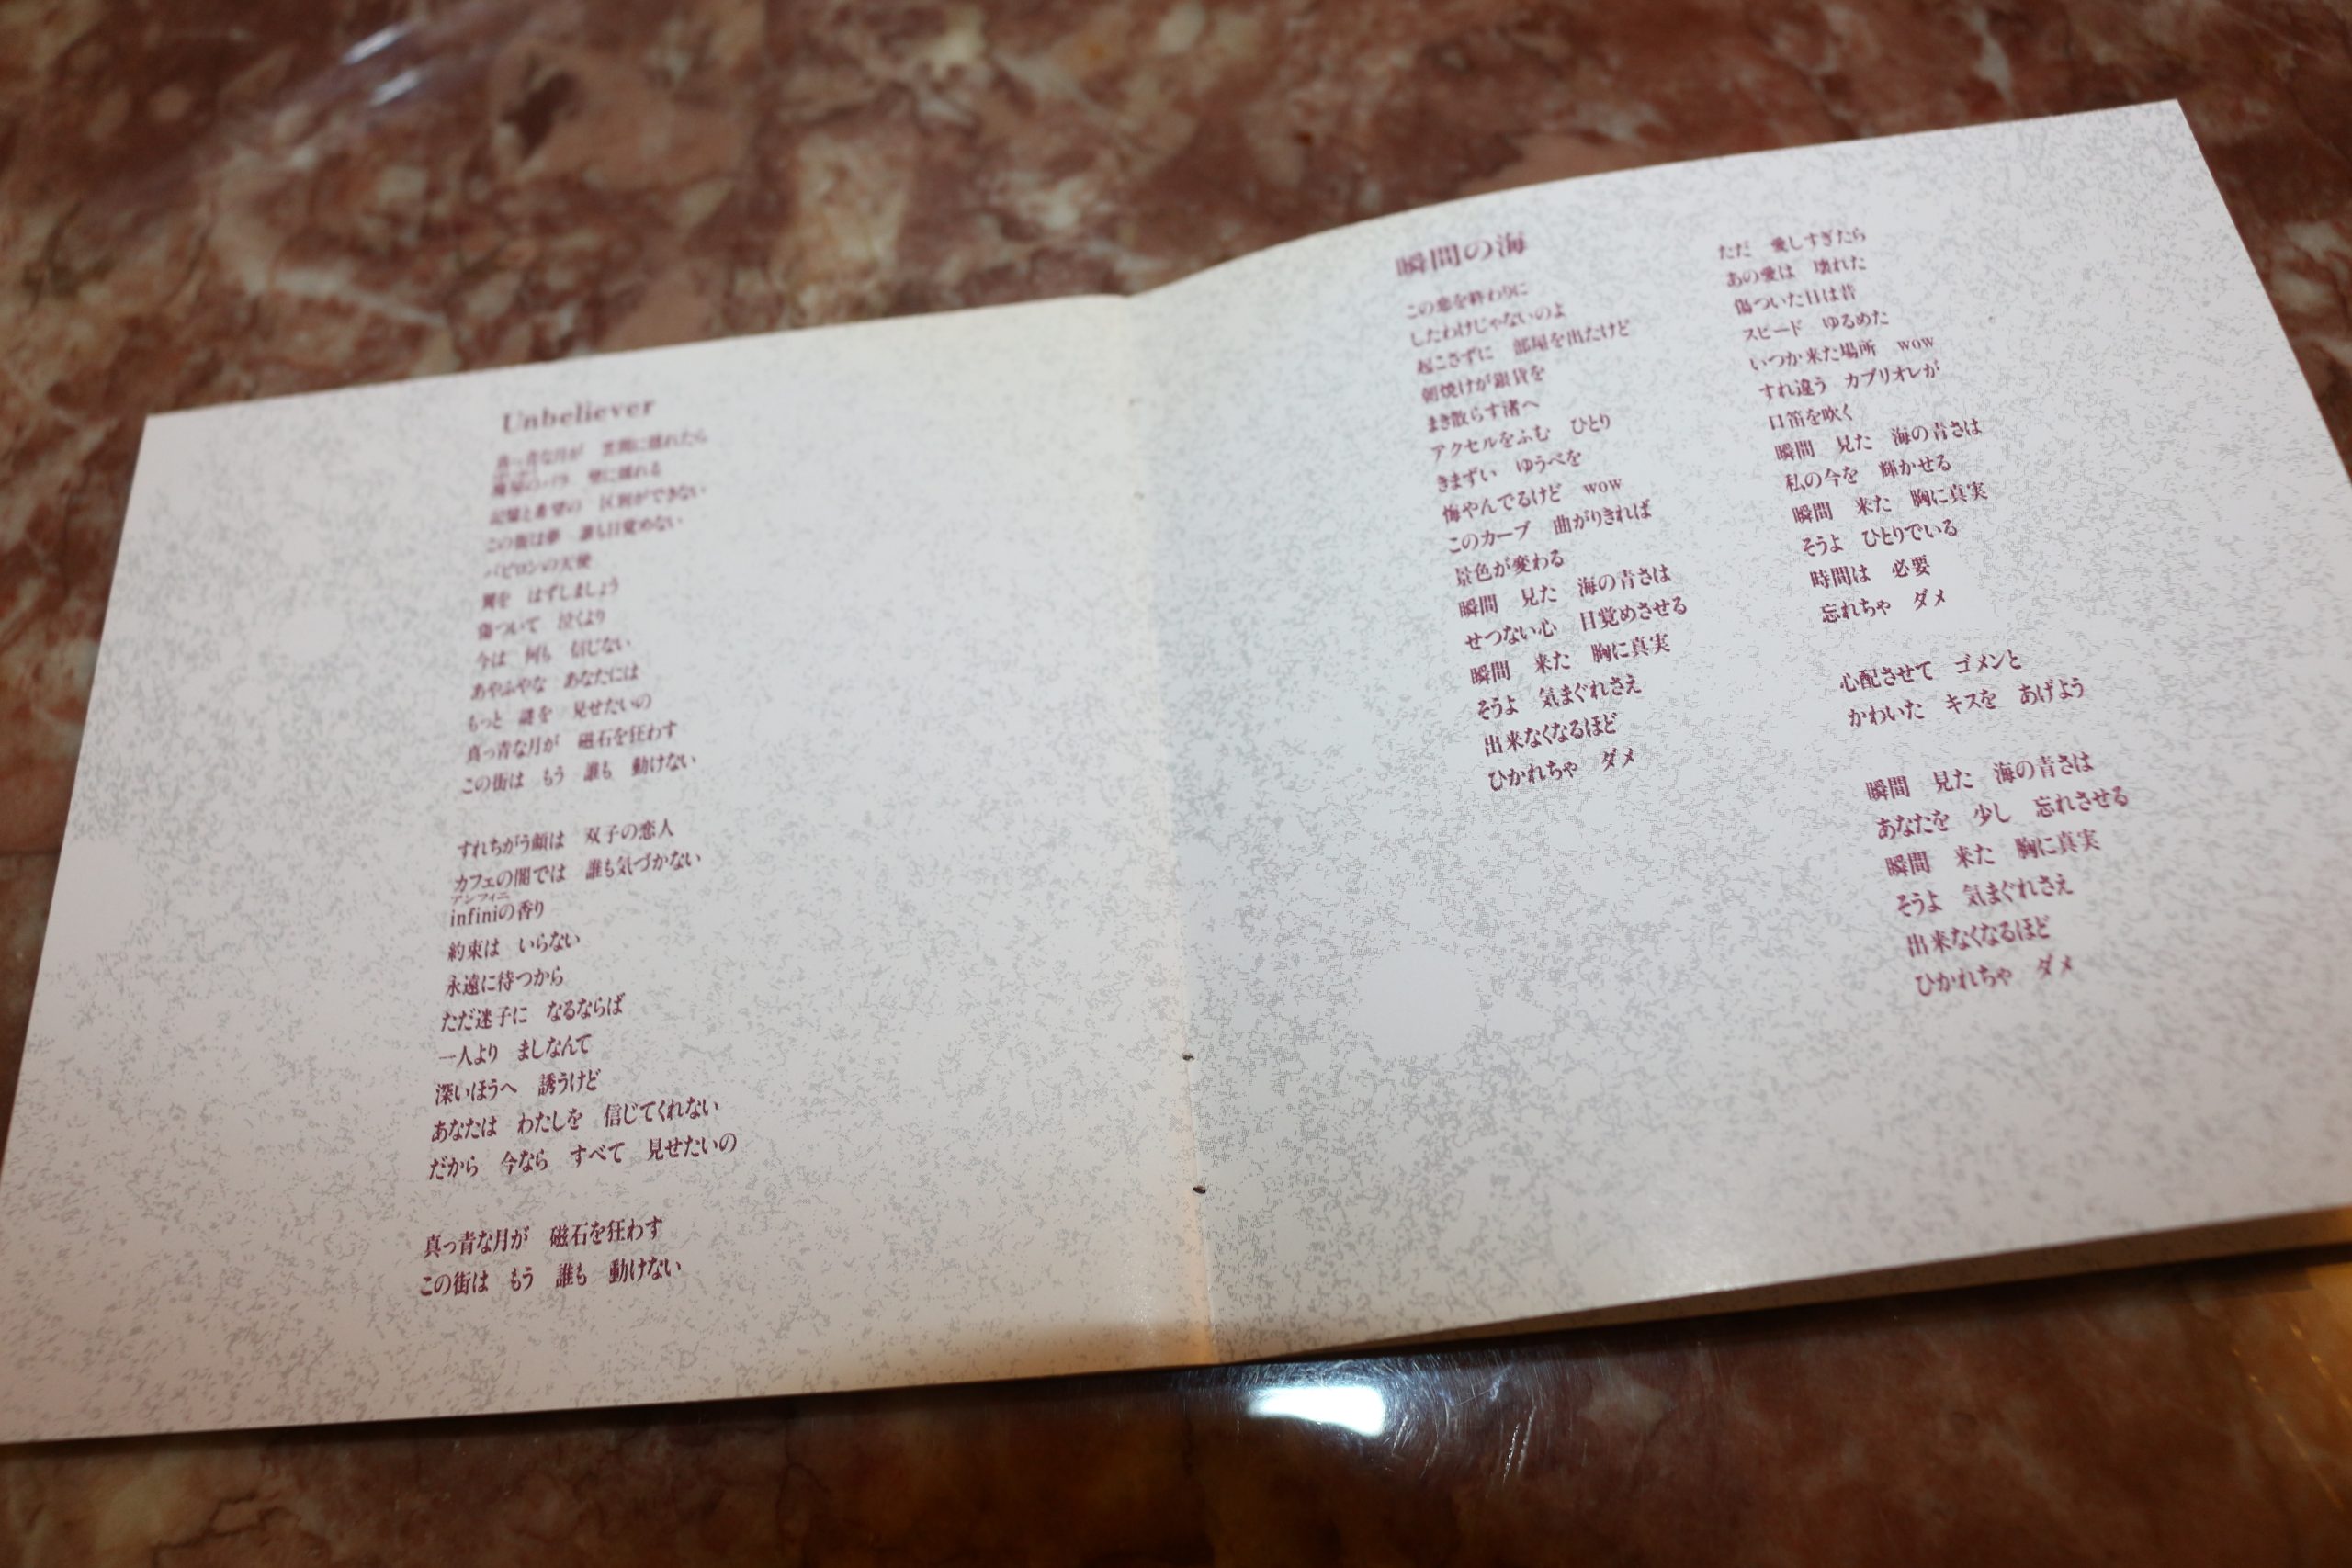 Unbeliever
真っ青な月が
壁に揺れる
記憶と希望の 区別ができない
この街は夢 誰も目覚めない
バビロンの天使
翼を はずしましょう
傷ついて 泣くより
今は 何も 信じない
あやふやな あなたには
もっと 謎を 見せたいの
真っ青な月が 磁石を狂わす
この街は もう 誰も 動けない
すれちがう顔は 双子の恋人
カフェの闇では 誰も気づかない
アンフィニ
infiniの香り
約束は いらない
永遠に待つから
ただ迷子に なるならば
一人より ましなんて
深いほうへ 誘うけど
あなたは わたしを 信じてくれない
だから 今なら すべて 見せたいの
真っ青な月が 磁石を狂わす
この街は もう 誰も 動けない
瞬間の海
この恋を終わりに
したわけじゃないのよ
起こさずに 部屋を出たけど
朝焼けが銀貨を
まき散らす渚へ
アクセルをふむ ひとり
きまずい ゆうべを
悔やんでるけど wow
このカーブ 曲がりきれば
景色が変わる
瞬間 見た 海の青さは
せつない心 目覚めさせる
瞬間 来た 胸に真実
そうよ 気まぐれさえ
出来なくなるほど
ひかれちゃ ダメ
ただ 愛しすぎたら
あの愛は 壊れた
傷ついた日は昔
スピード ゆるめた
いつか来た場所 wow
すれ違う カブリオレが
口笛を吹く
瞬間 見た 海の青さは
私の今を 輝かせる
瞬間 来た 胸に真実
そうよ ひとりでいる
時間は 必要
忘れちゃ ダメ
心配させて ゴメンと
かわいた キスを あげよう
瞬間 見た 海の青さは
あなたを 少し 忘れさせる
瞬間 来た 胸に真実
そうよ 気まぐれさえ
出来なくなるほど
ひかれちゃ ダメ